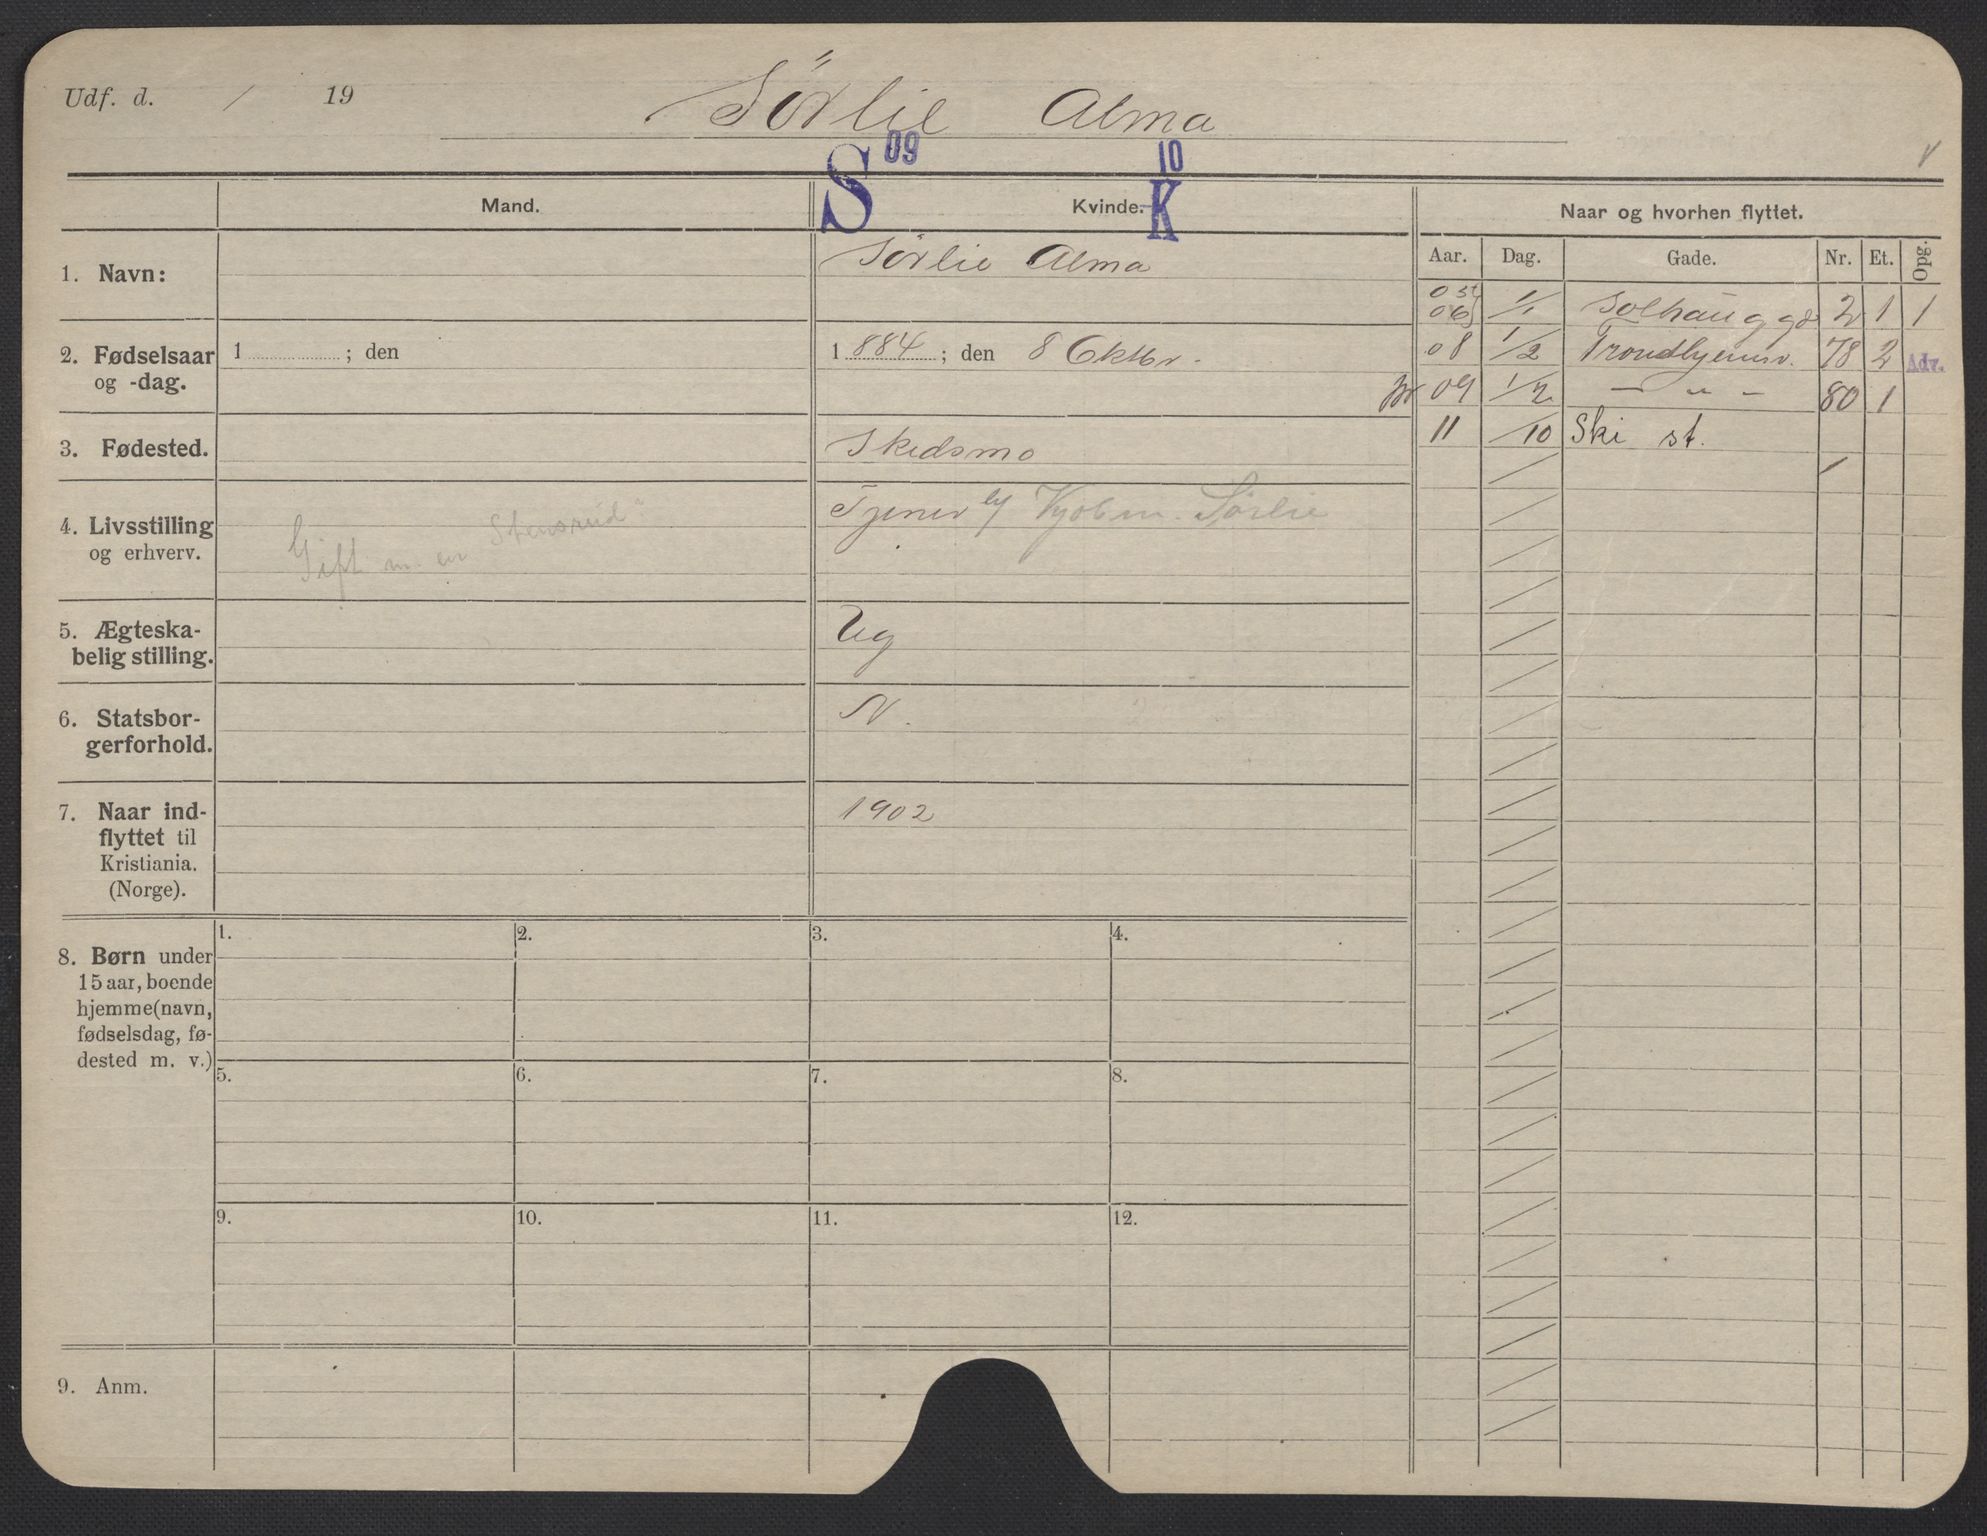 Udf. d. / 19
Sørlie Alma
S 09
10 K
Mand.
Kvinde.
Naar og hvorhen flyttet.
Aar. Dag. Gade. Nr. Et. Opg.
1. Navn:
Sørlie Alma
2. Fødselsaar
og -dag.
1 ; den
1 884 ; den 8 Oktbr.
3. Fødested.
Skedsmo
4. Livsstilling
og erhverv.
Gift m. en Stensrud
Tjener Kjøbm. Sørlie
5. Ægteska-
belig stilling.
Ug
6. Statsbor-
gerforhold.
N.
7. Naar ind-
flyttet til
Kristiania.
(Norge).
1902
8. Børn under
15 aar, boende
hjemme (navn,
fødselsdag, fø-
dested m. v.)
1. 2. 3. 4.
5. 6. 7. 8.
9. 10. 11. 12.
9. Anm.
06 1/1 Solhauggd 2 1 1
08 1/2 Trondhjemsv. 78 2 Adr.
09 1/2 — „ — 80 1
11 /10 Ski st.